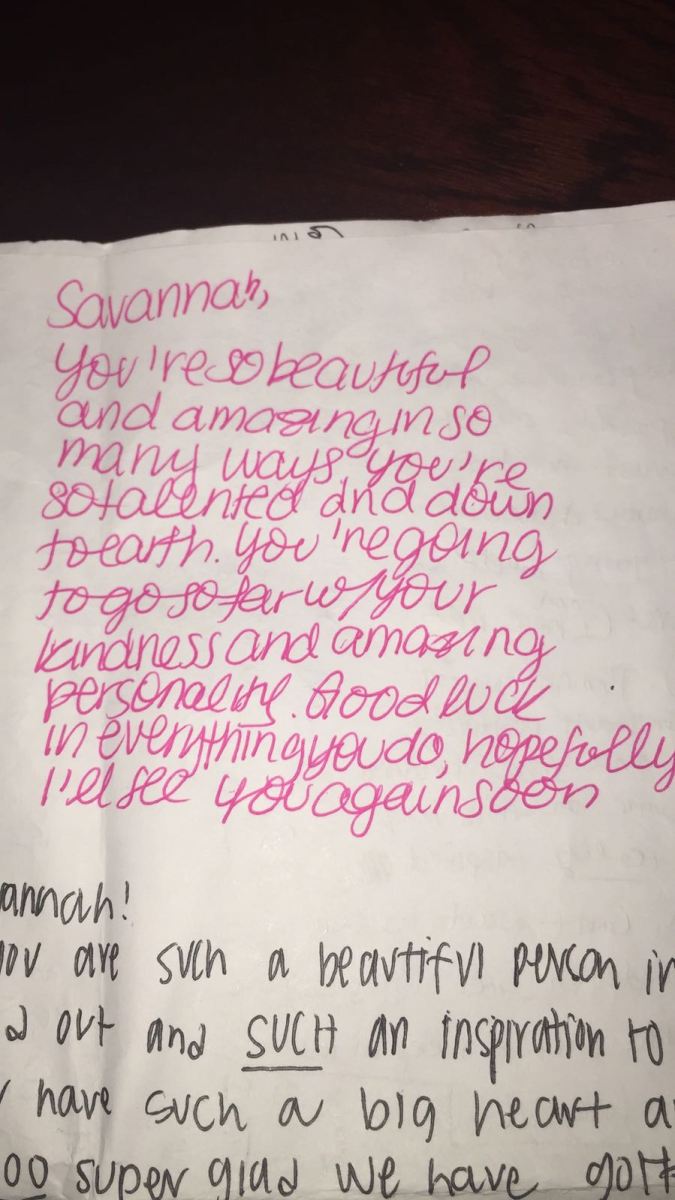 Savannah,
You're so beautiful
and amazing in so
many ways, you're
so talented and down
to earth. You're going
to go so far w/ your
kindness and amazing
personality. Good luck
in everything you do, hopefully
I'll see you again soon
annah!
you are such a beautiful person in
d out and SUCH an inspiration to
have such a big heart a
oo super glad we have gott